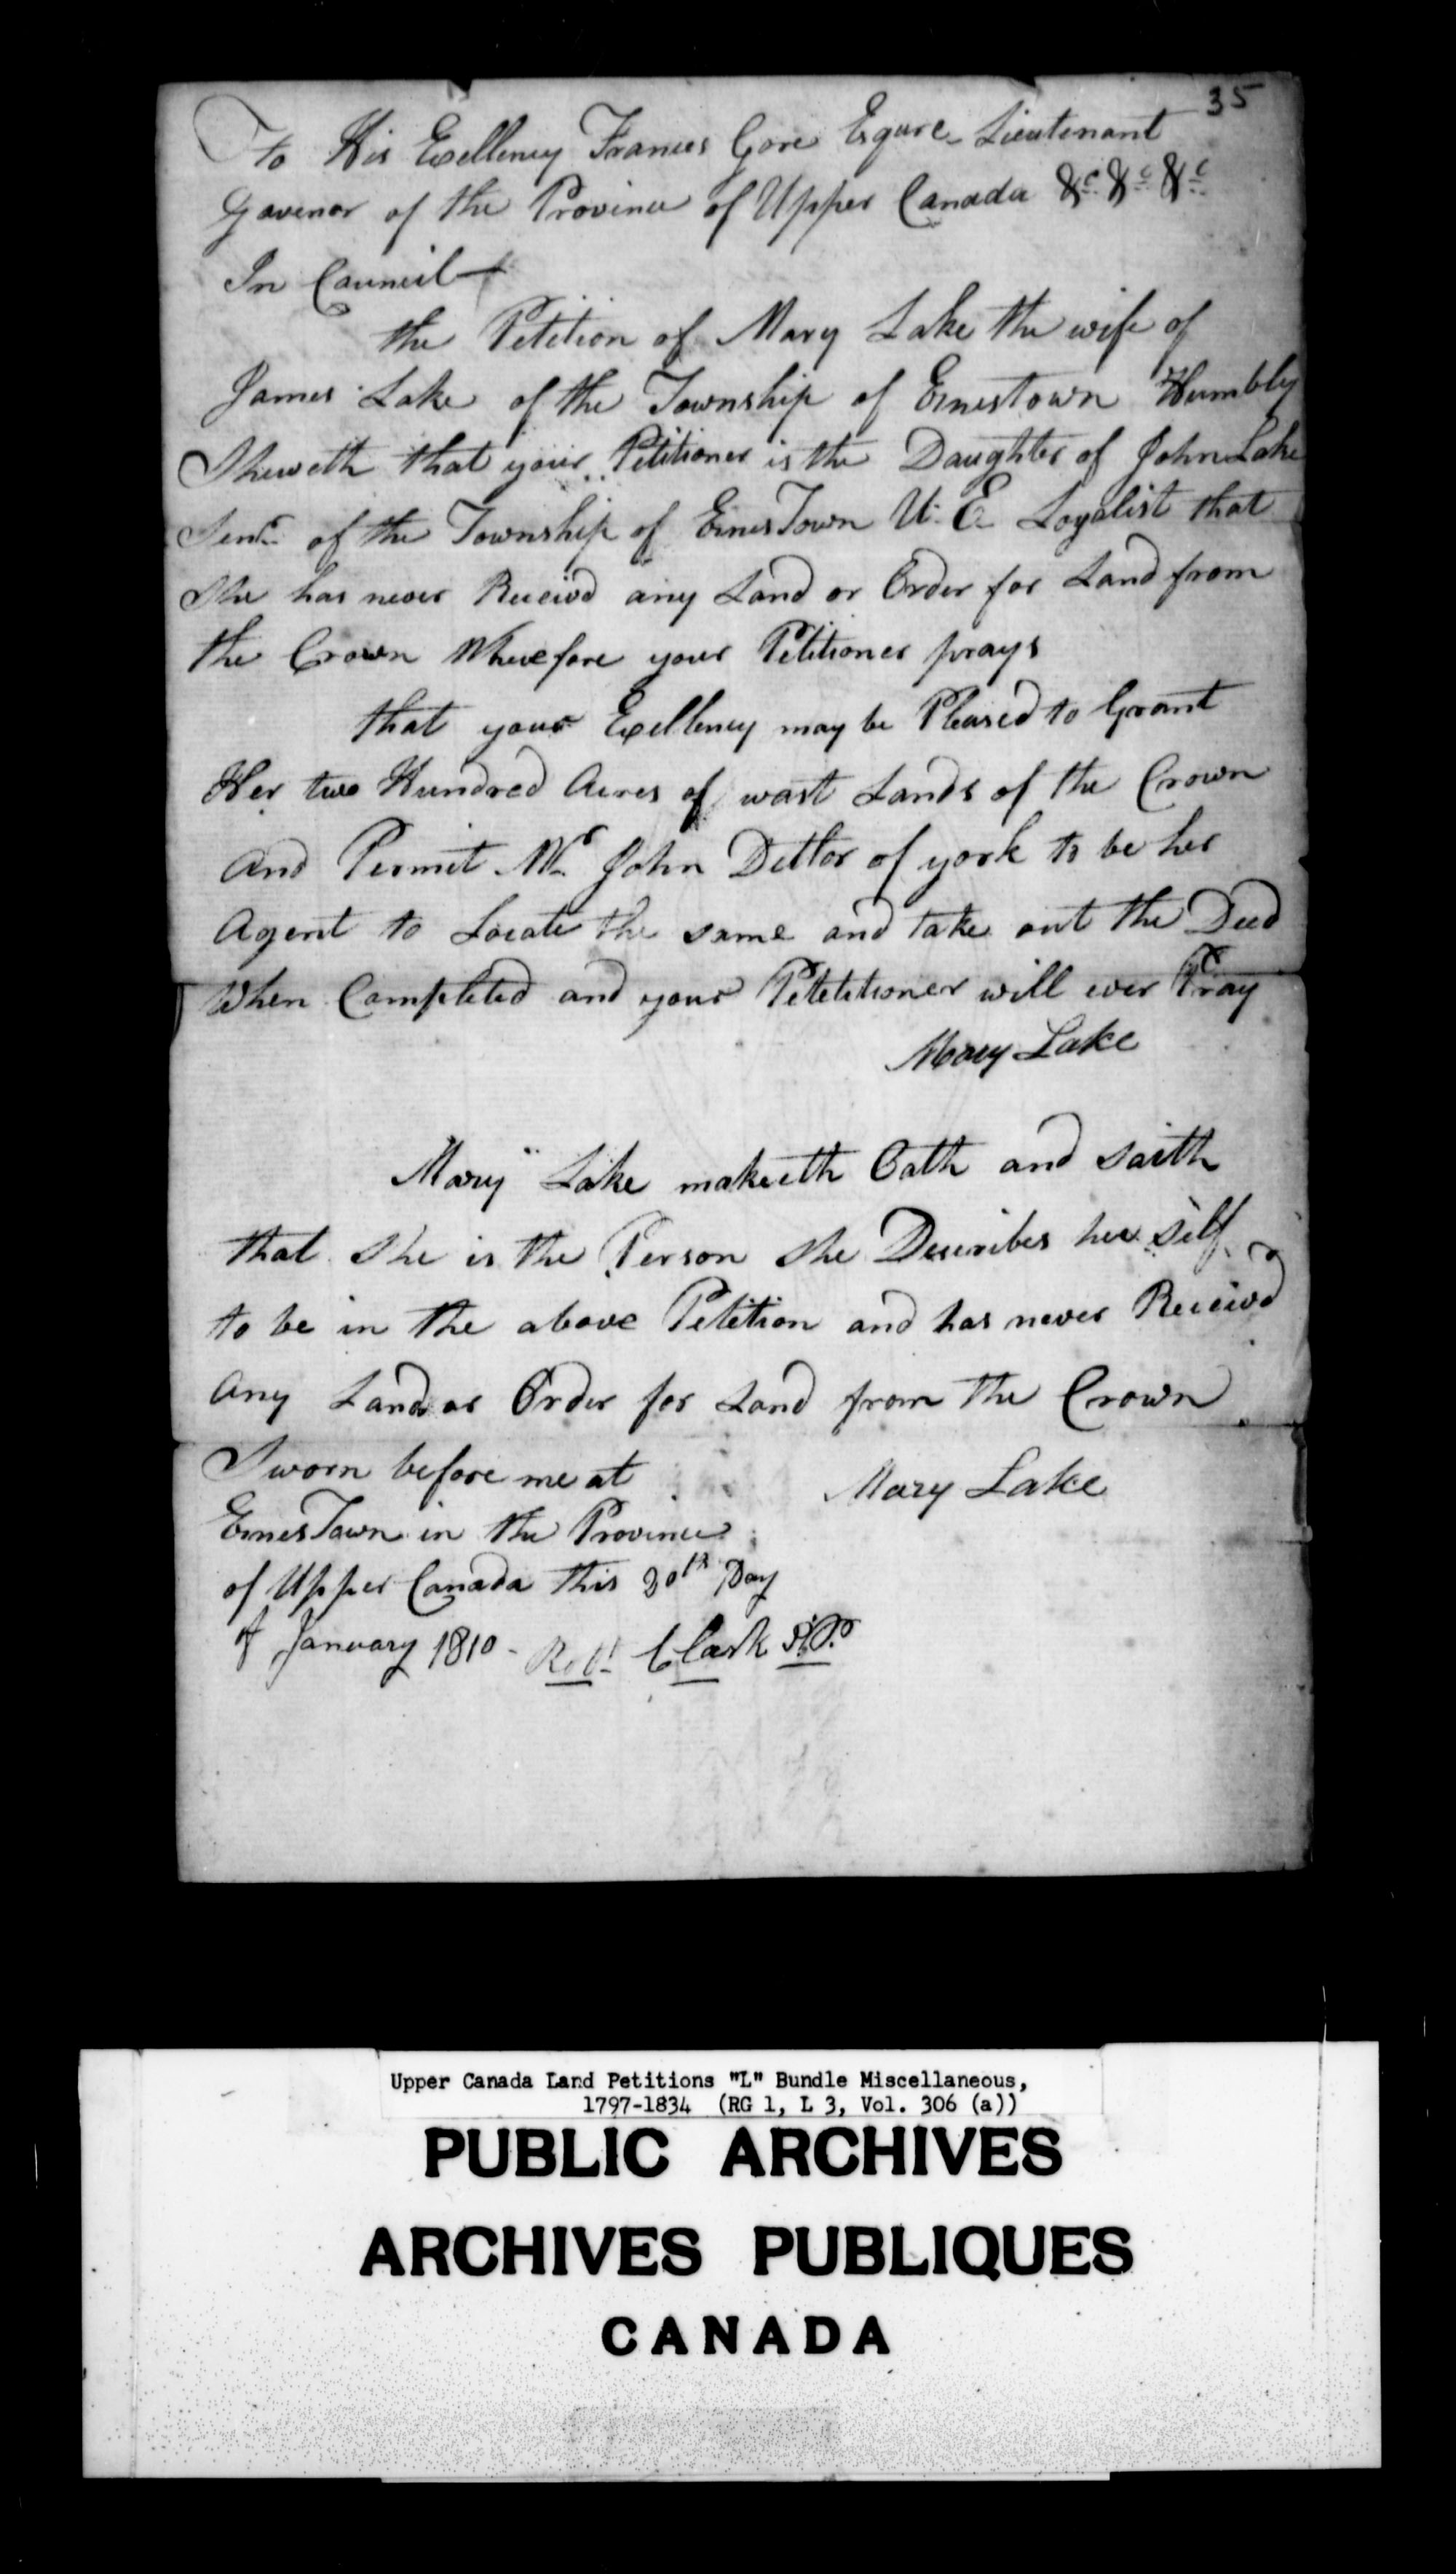 35
To His Exellency Frances Gore Esqure Lieutenant
Govenor of the Province of Upper Canada &c &c &c
In Council
the Petition of Mary Lake the wife of
James Lake of the Township of Ernestown Humbly
Sheweth that your Petitioner is the Daughter of John Lake
Senr of the Township of ErnesTown U. E Loyalist that
She has never Receivd any Land or Order for Land from
the Crown Wherefore your Petitioner prays
that your Exellency may be Pleased to Grant
Her two Hundred Acres of wast Lands of the Crown
And Permit Mr John Detlor of york to be her
Agent to Locate the same and take out the Deed
When Completed and your Petetitioner will ever Pray
Mary Lake
Mary Lake maketh Oath and saith
that She is the Person She Describes her self
to be in the above Petition and has never Receivd
Any Land or Order for Land from the Crown
Sworn before me at
Mary Lake
ErnesTown in the Province
of Upper Canada this 30th Day
of January 1810 - Robt Clark J.P.
Upper Canada Land Petitions "L" Bundle Miscellaneous,
1797-1834 (RG 1, L 3, Vol. 306 (a))
PUBLIC ARCHIVES
ARCHIVES PUBLIQUES
CANADA